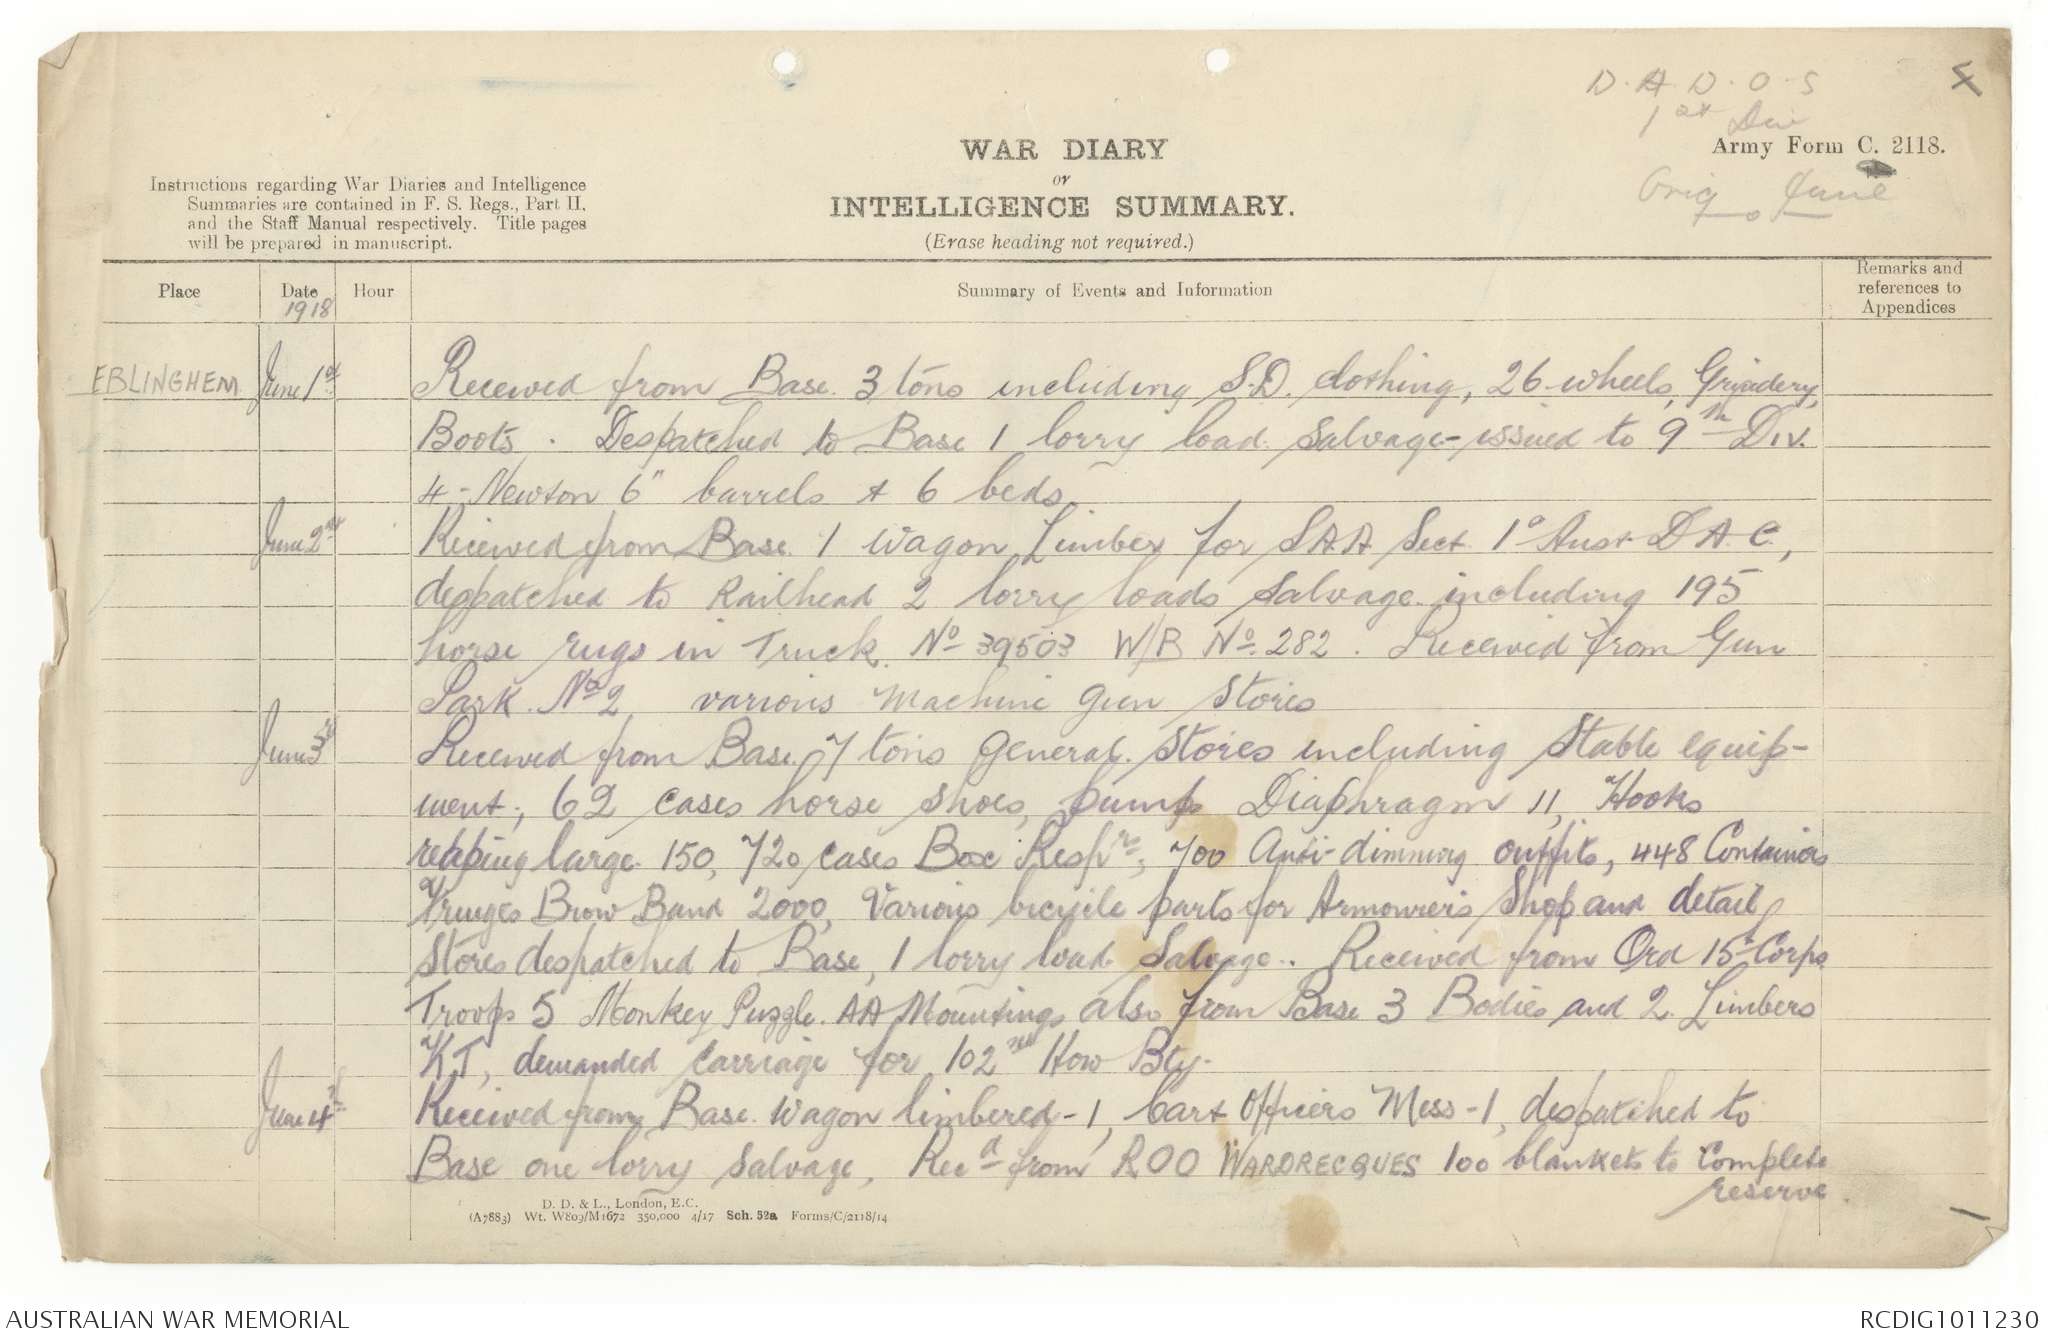 D.A.D.O.S
1st Div
4
Army Form C. 2118.
Orig June
WAR DIARY
or
INTELLIGENCE SUMMARY.
(Erase heading not required.)
Instructions regarding War Diaries and Intelligence
Summaries are contained in F. S. Regs., Part II,
and the Staff Manual respectively. Title pages
will be prepared in manuscript.
Place
Date
1918
Hour
Summary of Events and Information
Remarks and
references to
Appendices
EBLINGHEM June 1st Received from Base 3 tons including S.D. clothing, 26 wheels, Grindery,
Boots. Despatched to Base 1 lorry load salvage - issued to 9th Div.
4 - Newton 6" barrels & 6 beds.
June 2nd Received from Base 1 Wagon Limber for SAA Sect 1o Aust D.A.C.,
despatched to Railhead 2 lorry loads salvage including 195
horse rugs in Truck No 39503 W/B No. 282. Received from Gun
Park No 2 various Machine Gun Stores
June 3rd Received from Base 7 tons General Stores including Stable equip-
ment, 62 cases horse shoes, pumps Diaphragm 11, Hooks
reaping large 150, 720 cases Box Resprs, 700 Anti-dimming outfits, 448 Containers
Fringes Brow Band 2000, Various bicycle parts for Armourers Shop and detail
Stores despatched to Base, 1 lorry load Salvage. Received from Ord 15th Corps
Troops 5 Monkey Puzzle AA Mountings also from Base 3 Bodies and 2 Limbers
KT, demanded carriage for 102nd How Bty.
June 4th Received from Base Wagon limbered - 1, Cart Officers Mess - 1, despatched to
Base one lorry salvage, Recd from ROO WARDRECQUES 100 blankets to complete
reserve.
D. D. & L., London, E.C.
(A7883) Wt. W809/M1672 350,000 4/17 Sch. 52a Forms/C/2118/14
AUSTRALIAN WAR MEMORIAL
RCDIG1011230